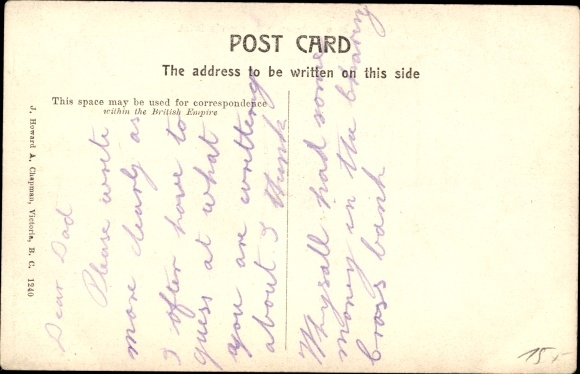 POST CARD
The address to be written on this side
This space may be used for correspondence
within the British Empire
J. Howard A. Chapman, Victoria, B. C. 1240
Dear Dad
Please write
more clearly as
I often have to
guess at what
you are writting
about I think
Whysall had some
money in the Charing
Cross bank
15.-